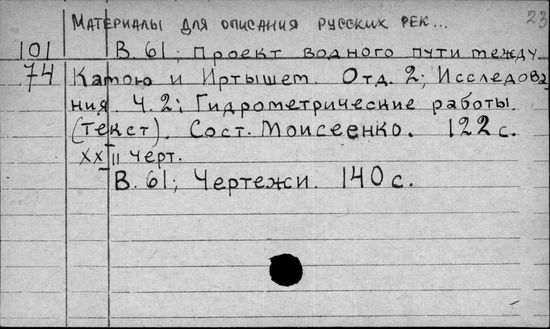 Материалы для описания русских рек... 23
101 В. 61; Проект водного пути между
74 Камою и Иртышем. Отд. 2; Исследова
ния. Ч. 2: Гидрометрические работы.
(текст). Сост. Моисеенко. 122 с.
XX II черт.
В. 61; Чертежи. 140 с.